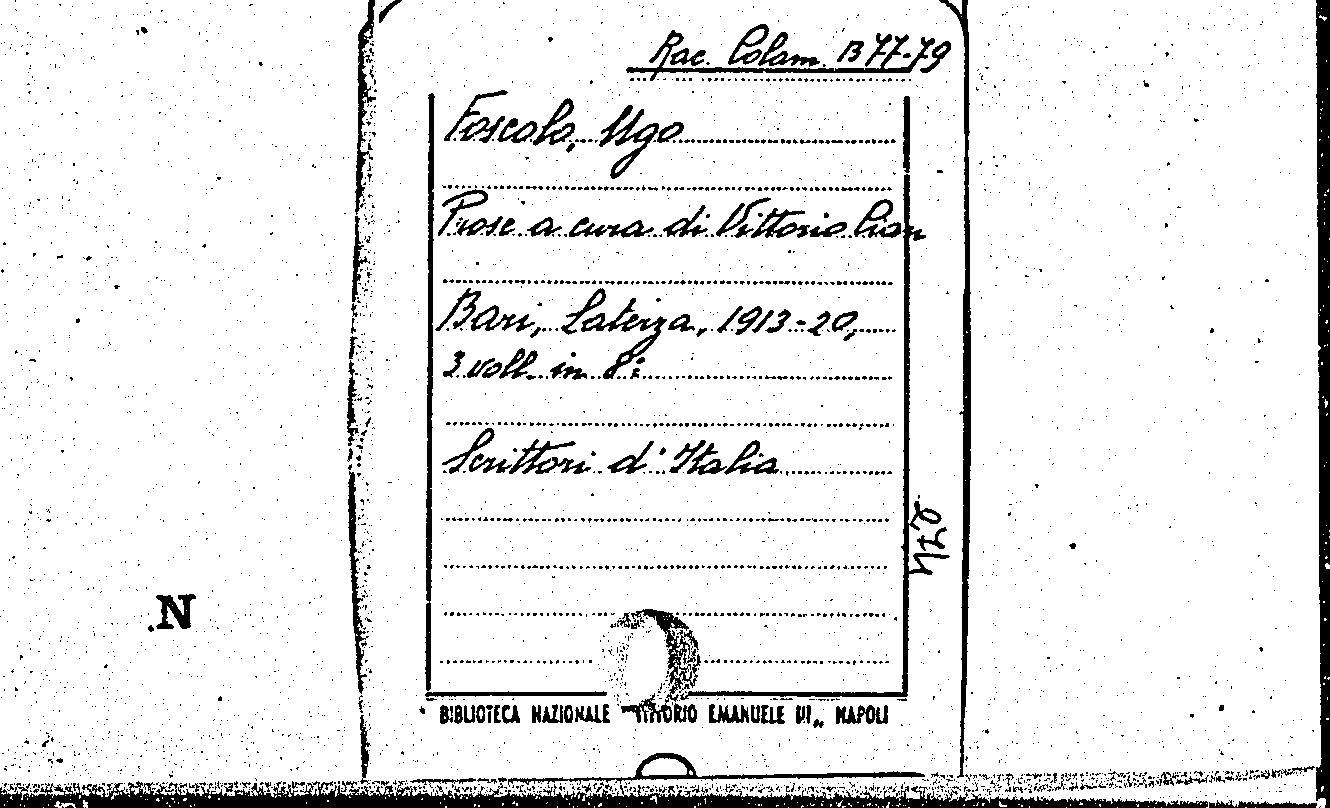 Rac. Colam. B 77-79
Foscolo, Ugo
Prose a cura di Vittorio Cian
Bari, Laterza, 1913-20,
3 voll. in 8:
Scrittori d'Italia
N
BIBLIOTECA NAZIONALE "VITTORIO EMANUELE III„ NAPOLI